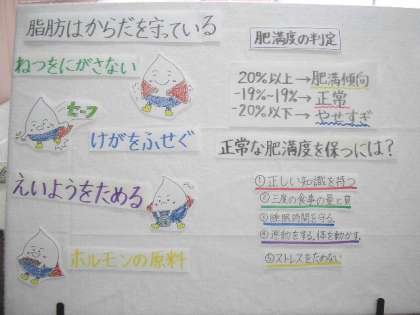 脂肪はからだを守っている
ねつをにがさない
セーフ
けがをふせぐ
えいようをためる
ホルモンの原料
肥満度の判定
20%以上→肥満傾向
-19%~19%→正常
-20%以下→やせすぎ
正常な肥満度を保つには?
①正しい知識を持つ
②三度の食事の量と質
③睡眠時間を守る
④運動をする。体を動かす。
⑤ストレスをためない